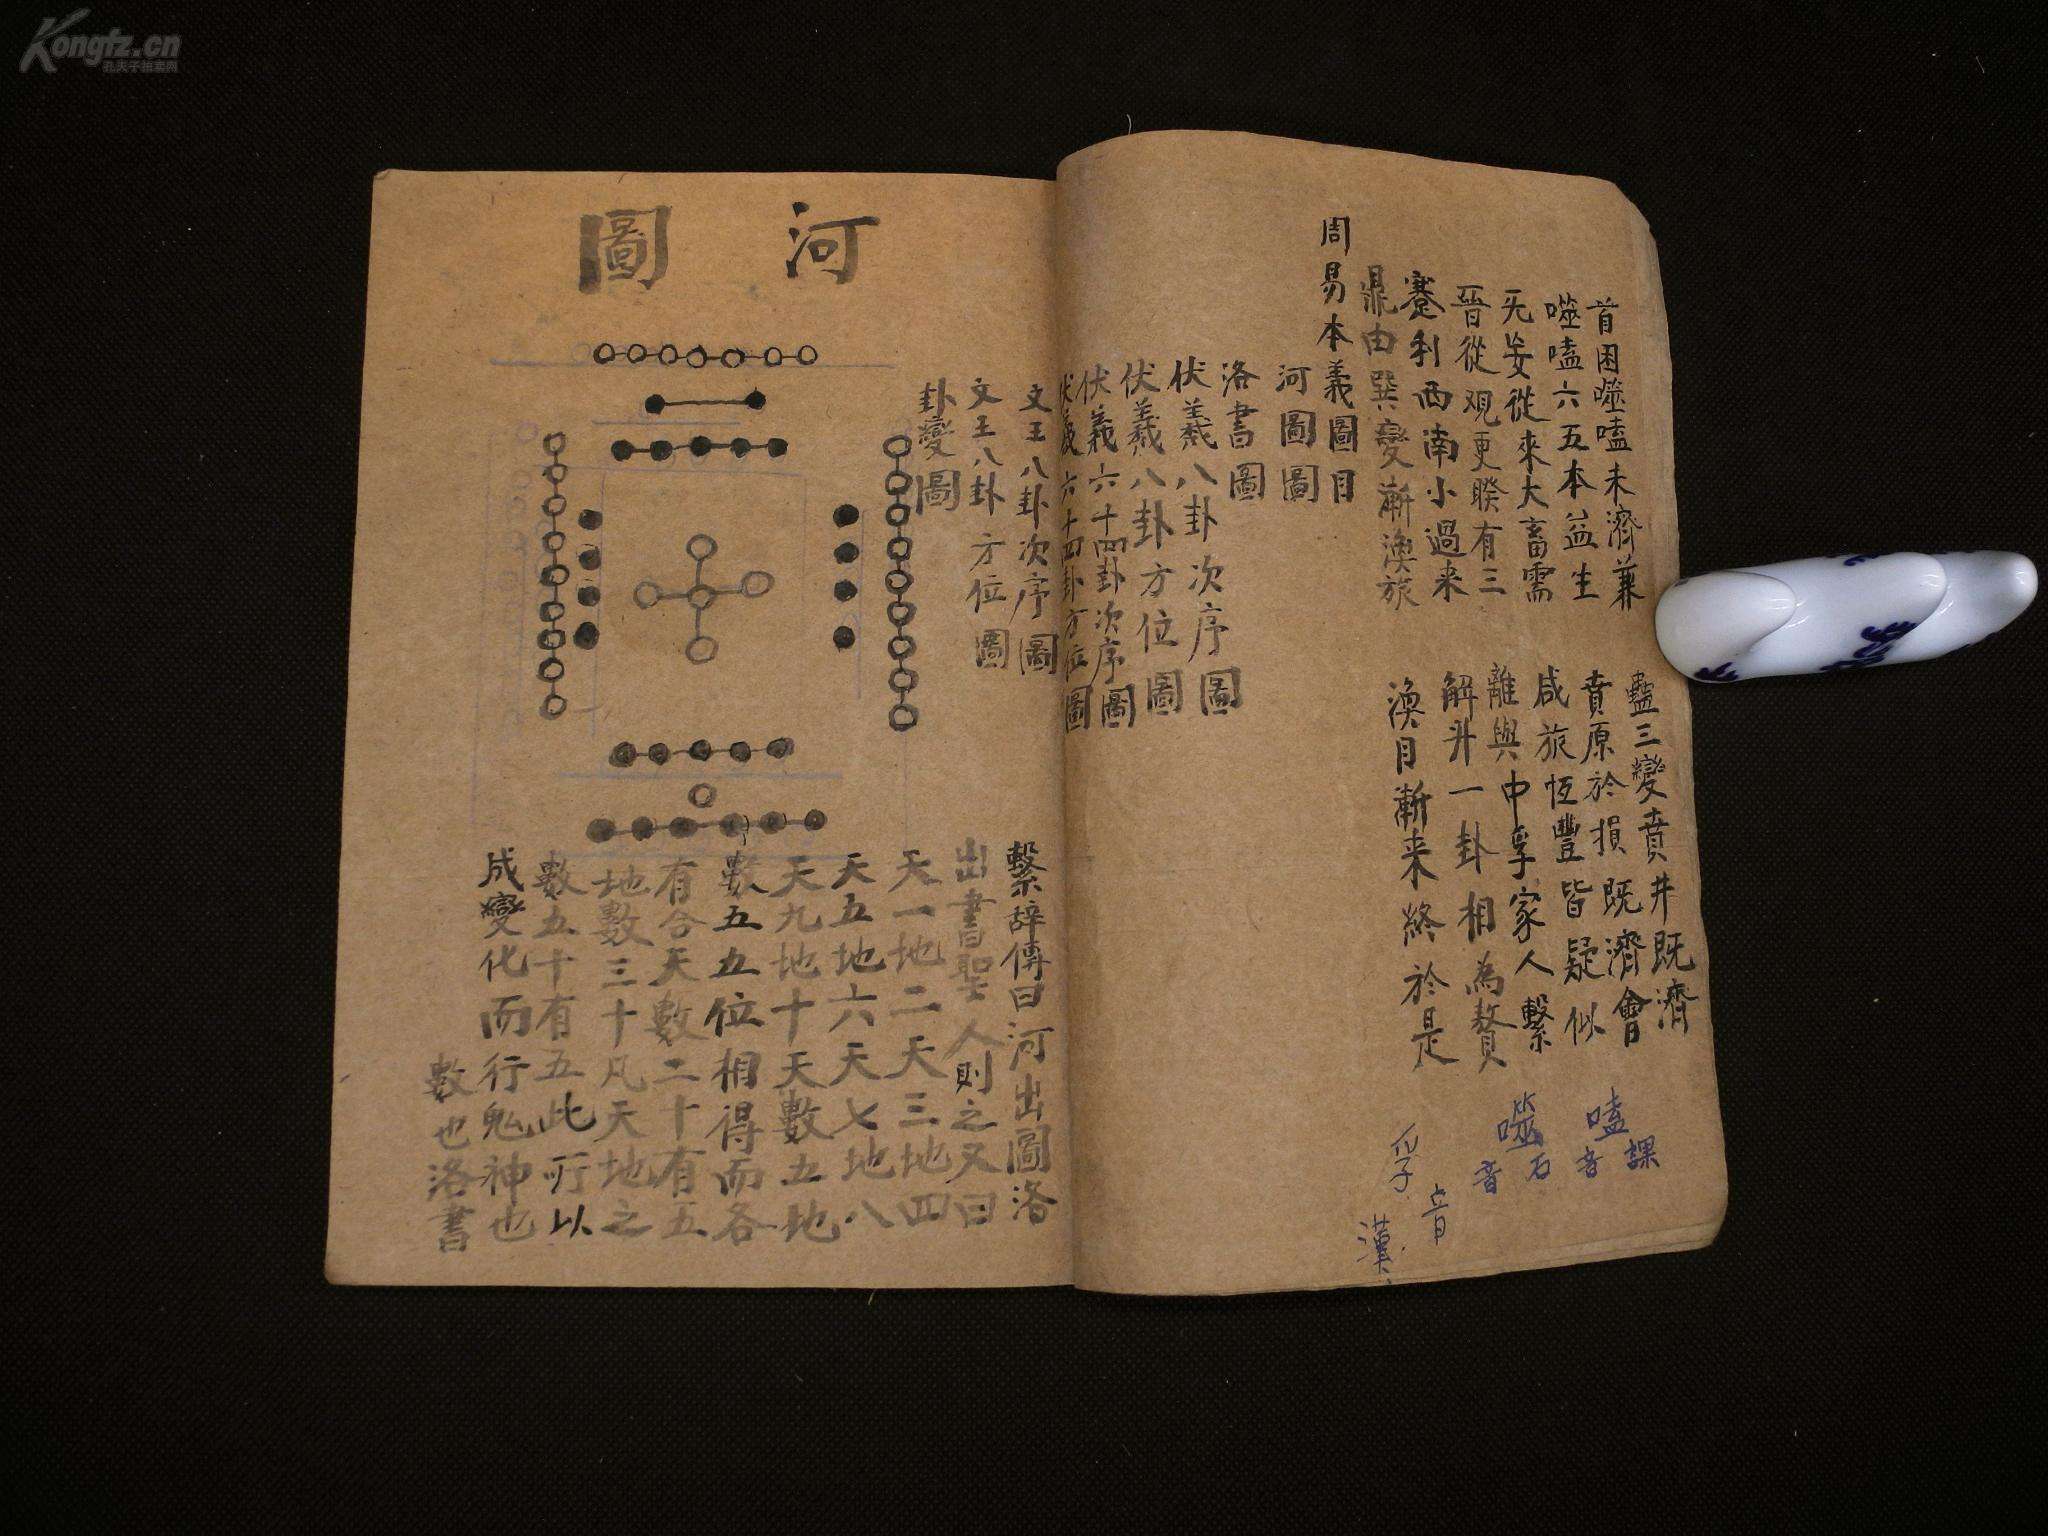 Kongfz.cn
孔夫子拍卖网
首困噬嗑未濟兼 蠱三變賁井既濟
噬嗑六五本益生 賁原於損既濟會
无妄從來大畜需 咸旅恆豐皆疑似
晉從观更睽有三 離與中孚家人繫
蹇利西南小過来 解升一卦相為贅
鼎由巽變漸渙旅 渙自漸来終於是
嗑音課
噬音石
孚音
周易本義圖目
河圖圖
洛書圖
伏羲八卦次序圖
伏羲八卦方位圖
伏羲六十四卦次序圖
伏羲六十四卦方位圖
文王八卦次序圖
文王八卦方位圖
卦變圖
河圖
繫辭傳曰河出圖洛
出書聖人則之又曰
天一地二天三地四
天五地六天七地八
天九地十天數五地
數五五位相得而各
有合天數二十有五
地數三十凡天地之
數五十有五此所以
成變化而行鬼神也
數也洛書